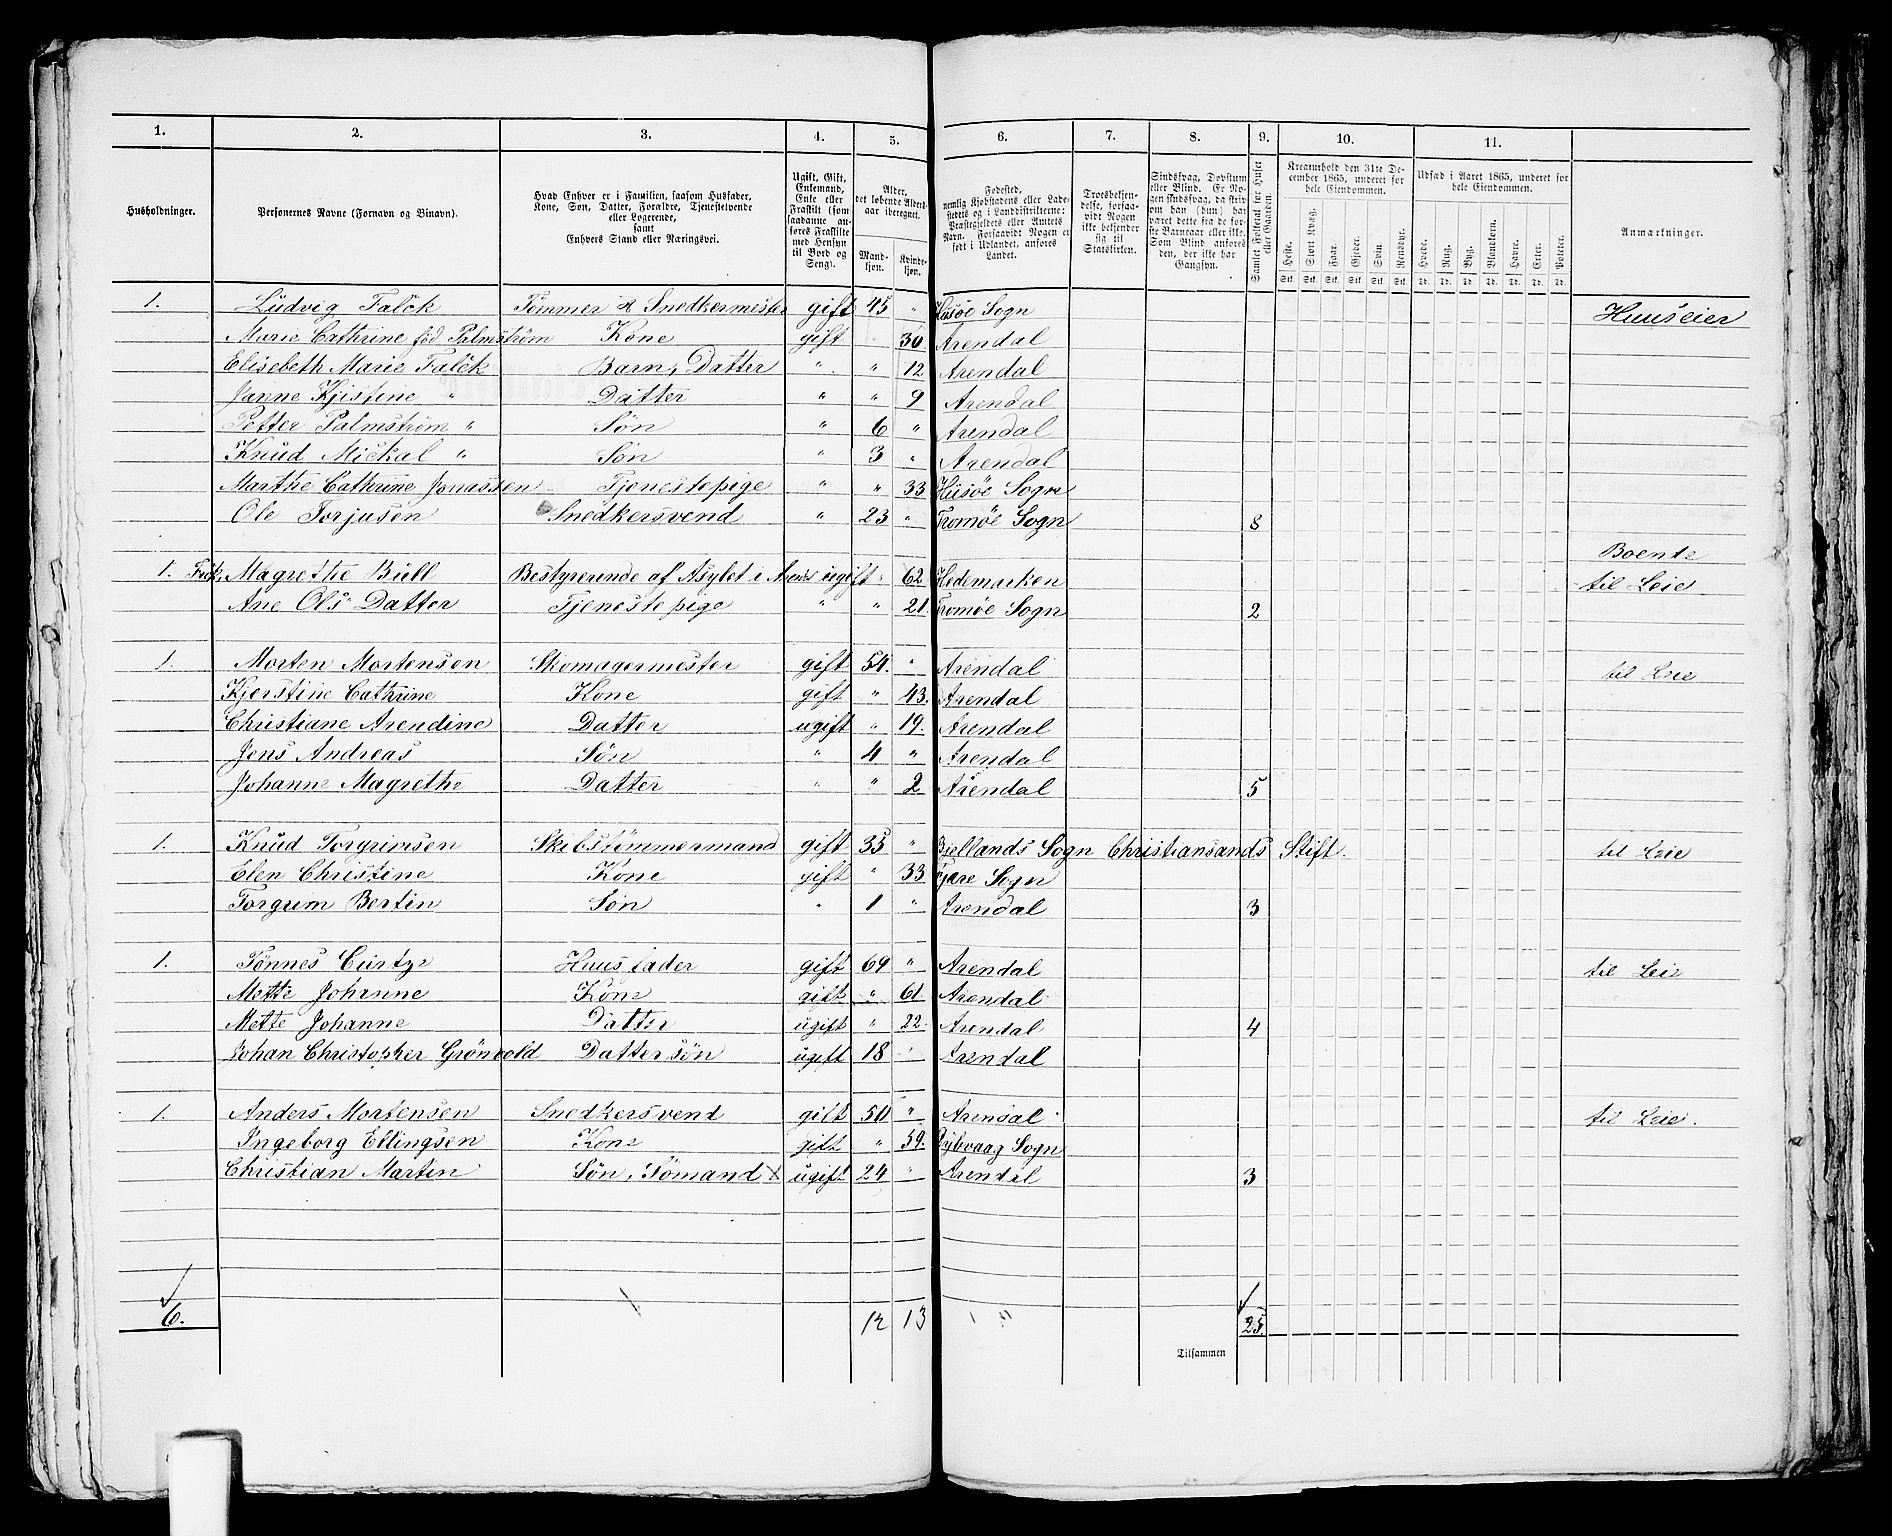 1. 2. 3. 4. 5. 6. 7. 8. 9. 10. 11.
Husholdninger.
Personernes Navne (Fornavn og Binavn).
Hvad Enhver er i Familien, saasom Husfader,
Kone, Søn, Datter, Forældre, Tjenestetyende
eller Logerende,
samt
Enhvers Stand eller Næringsvei.
Ugift, Gift,
Enkemand,
Enke eller
Fraskilt (som
saadanne an-
føres Fraskilte
med Hensyn
til Bord og
Seng).
Alder,
det løbende Alders-
aar iberegnet.
Mand-
kjøn.
Kvinde-
kjøn.
Fødested,
nemlig Kjøbstadens eller Lade-
stedets og i Landdistrikterne:
Præstegjeldets eller Amtets
Navn. Forsaavidt Nogen er
født i Udlandet, anføres
Landet.
Troesbekjen-
delse, forsaa-
vidt Nogen
ikke bekjender
sig til
Statskirken.
Sindssvag, Døvstum
eller Blind. Er No-
gen sindssvag, da skri-
ves om han (hun) har
været dette fra de før-
ste Barneaar eller ikke.
Som Blind anføres
den, der ikke har
Gangsyn.
Samlet Folketal for Huset
eller Gaarden.
Kreaturhold den 31te De-
cember 1865, underet for
hele Eiendommen.
Heste. Stort Kvæg. Faar. Gjeder. Svin. Rensdyr.
Stk. Stk. Stk. Stk. Stk. Stk.
Udsæd i Aaret 1865, underet for
hele Eiendommen.
Hvede. Rug. Byg. Blandkorn. Havre. Erter. Poteter.
Td. Td. Td. Td. Td. Td. Td.
Anmærkninger.
1. Ludvig Falck Tømmer & Snedkermester gift 45 " Hisøe Sogn Huuseier
Marie Cathrine fød Palmstrøm Kone gift 30 Arendal
Elisebeth Marie Falck Barn, Datter " " 12 Arendal
Janne Kjistine " Datter " " 9 Arendal
Petter Palmstrøm " Søn " 6 " Arendal
Knud Mickal " Søn " 3 " Arendal
Marthe Cathrine Jonassen Tjenestepige " " 33 Hisøe Sogn
Ole Torjusen Snedkersvend " 23 " Tromøe Sogn 8
Boende
1. Frøk. Magrethe Bull Bestyrerende af Asylet i Arendal ugift " 62 Hedemarken til Leie
Ane Ols Datter Tjenestepige " " 21. Tromøe Sogn 2
1. Morten Mortensen Skomagermester gift 54. " Arendal til Leie
Kjerstine Cathrine Kone gift " 43. Arendal
Christiane Arendine Datter ugift " 19. Arendal
Jens Andreas Søn " 4 " Arendal
Johanne Magrethe Datter " " 2 Arendal 5
1. Knud Torgrimsen Skibstømmermand gift 35 " Bjellands Sogn Christiansands Stift. til Leie
Elen Christine Kone gift " 33 Sogn
Torgum Bertin Søn " 1 " Arendal 3
1. Tønnes Curtze Huusfader gift 69 " Arendal til Leie
Mette Johanne Kone gift " 61. Arendal
Mette Johanne Datter ugift " 22. Arendal 4
Johan Christopher Grønvold Dattersøn ugift 18 " Arendal
1. Anders Mortensen Snedkersvend gift 50 " Arendal til Leie.
Ingeborg Ellingsen Kone gift " 59. Dybvaag Sogn
Christian Martin Søn, Sømand x ugift 24 " Arendal 3
6. 12 13 25.
Tilsammen